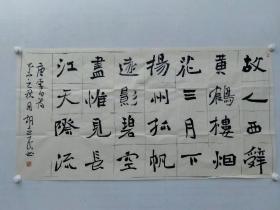 故人西辭
黃鶴樓烟
花三月下
揚州孤帆
遠影碧空
盡惟見長
江天際流
唐李白詩
之秋月胡